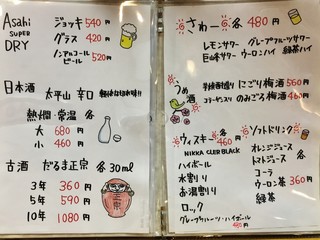 Asahi
SUPER
DRY
ジョッキ 540円
グラス 420円
ノンアルコールビール 520円
日本酒 太平山 辛口
熱燗・常温 各
大 680円
小 460円
古酒 だるま正宗 各30ml
3年 360円
5年 590円
10年 1080円
さわー 各480円
レモンサワー グレープフルーツサワー
巨峰サワー ウーロンハイ 緑茶ハイ
うめ酒
にごり梅酒 560円
のみごろ梅酒 460円
ウィスキー 各460円
NIKKA CLEAR BLACK
ハイボール
水割り
お湯割り
ロック
グレープフルーツ・ハイボール
ソフトドリンク
オレンジジュース
トマトジュース 各
コーラ
ウーロン茶 360円
緑茶